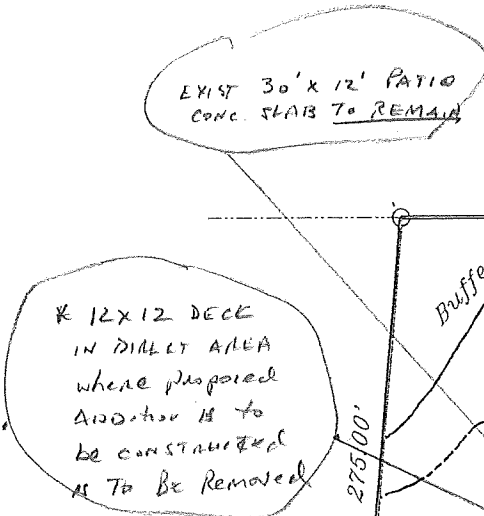 EXIST 30' x 12' PATIO
CONC. SLAB TO REMAIN
* 12x12 DECK
IN DIRECT AREA
where proposed
Addition is to
be constructed
is To Be Removed
Buffe
275.00'